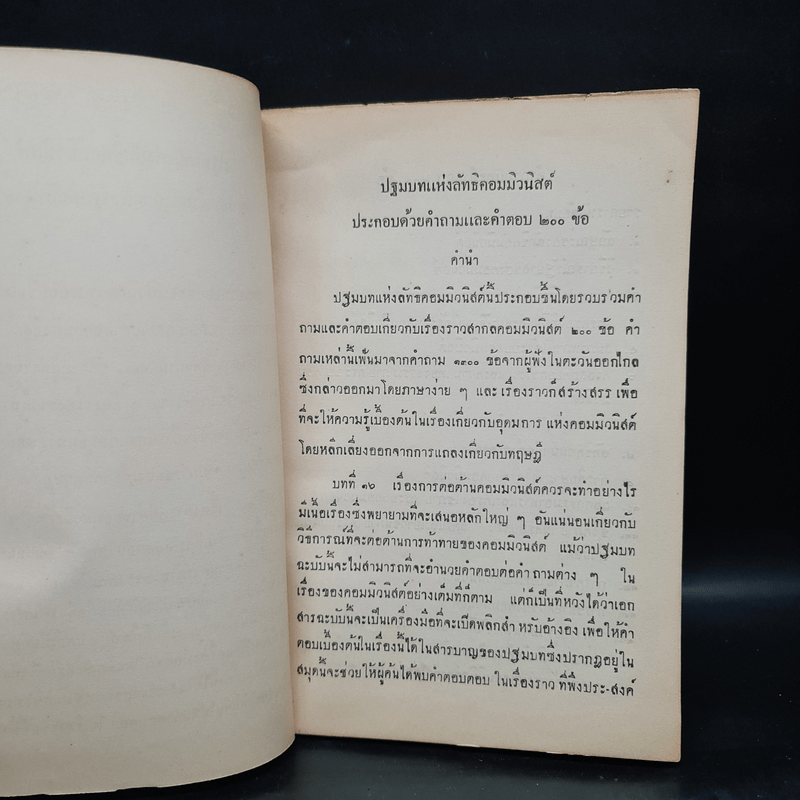 ปฐมบทแห่งลัทธิคอมมิวนิสต์
ประกอบด้วยคำถามและคำตอบ ๒๐๐ ข้อ
คำนำ
ปฐมบทแห่งลัทธิคอมมิวนิสต์นี้ประกอบขึ้นโดยรวบรวมคำ
ถามและคำตอบเกี่ยวกับเรื่องราวสากลคอมมิวนิสต์ ๒๐๐ ข้อ คำ
ถามเหล่านี้เฟ้นมาจากคำถาม ๑๙๐๐ ข้อจากผู้ฟังในตะวันออกไกล
ซึ่งกล่าวออกมาโดยภาษาง่าย ๆ และ เรื่องราวก็สร้างสรร เพื่อ
ที่จะให้ความรู้เบื้องต้นในเรื่องเกี่ยวกับอุดมการ แห่งคอมมิวนิสต์
โดยหลีกเลี่ยงออกจากการแถลงเกี่ยวกับทฤษฎี
บทที่ ๑๖ เรื่องการต่อต้านคอมมิวนิสต์ควรจะทำอย่างไร
มีเนื้อเรื่องซึ่งพยายามที่จะเสนอหลักใหญ่ ๆ อันแน่นอนเกี่ยวกับ
วิธีการณ์ที่จะต่อต้านการท้าทายของคอมมิวนิสต์ แม้ว่าปฐมบท
ฉะบับนี้จะไม่สามารถที่จะอำนวยคำตอบต่อคำ ถามต่าง ๆ ใน
เรื่องของคอมมิวนิสต์อย่างเต็มที่ก็ตาม แต่ก็เป็นที่หวังได้ว่าเอก
สารฉะบับนี้จะเป็นเครื่องมือที่จะเปิดพลิกสำ หรับอ้างอิง เพื่อให้คำ
ตอบเบื้องต้นในเรื่องนี้ได้ในสารบาญของปฐมบทซึ่งปรากฏอยู่ใน
สมุดนี้จะช่วยให้ผู้ค้นได้พบคำตอบตอบ ในเรื่องราว ที่พึงประ-สงค์